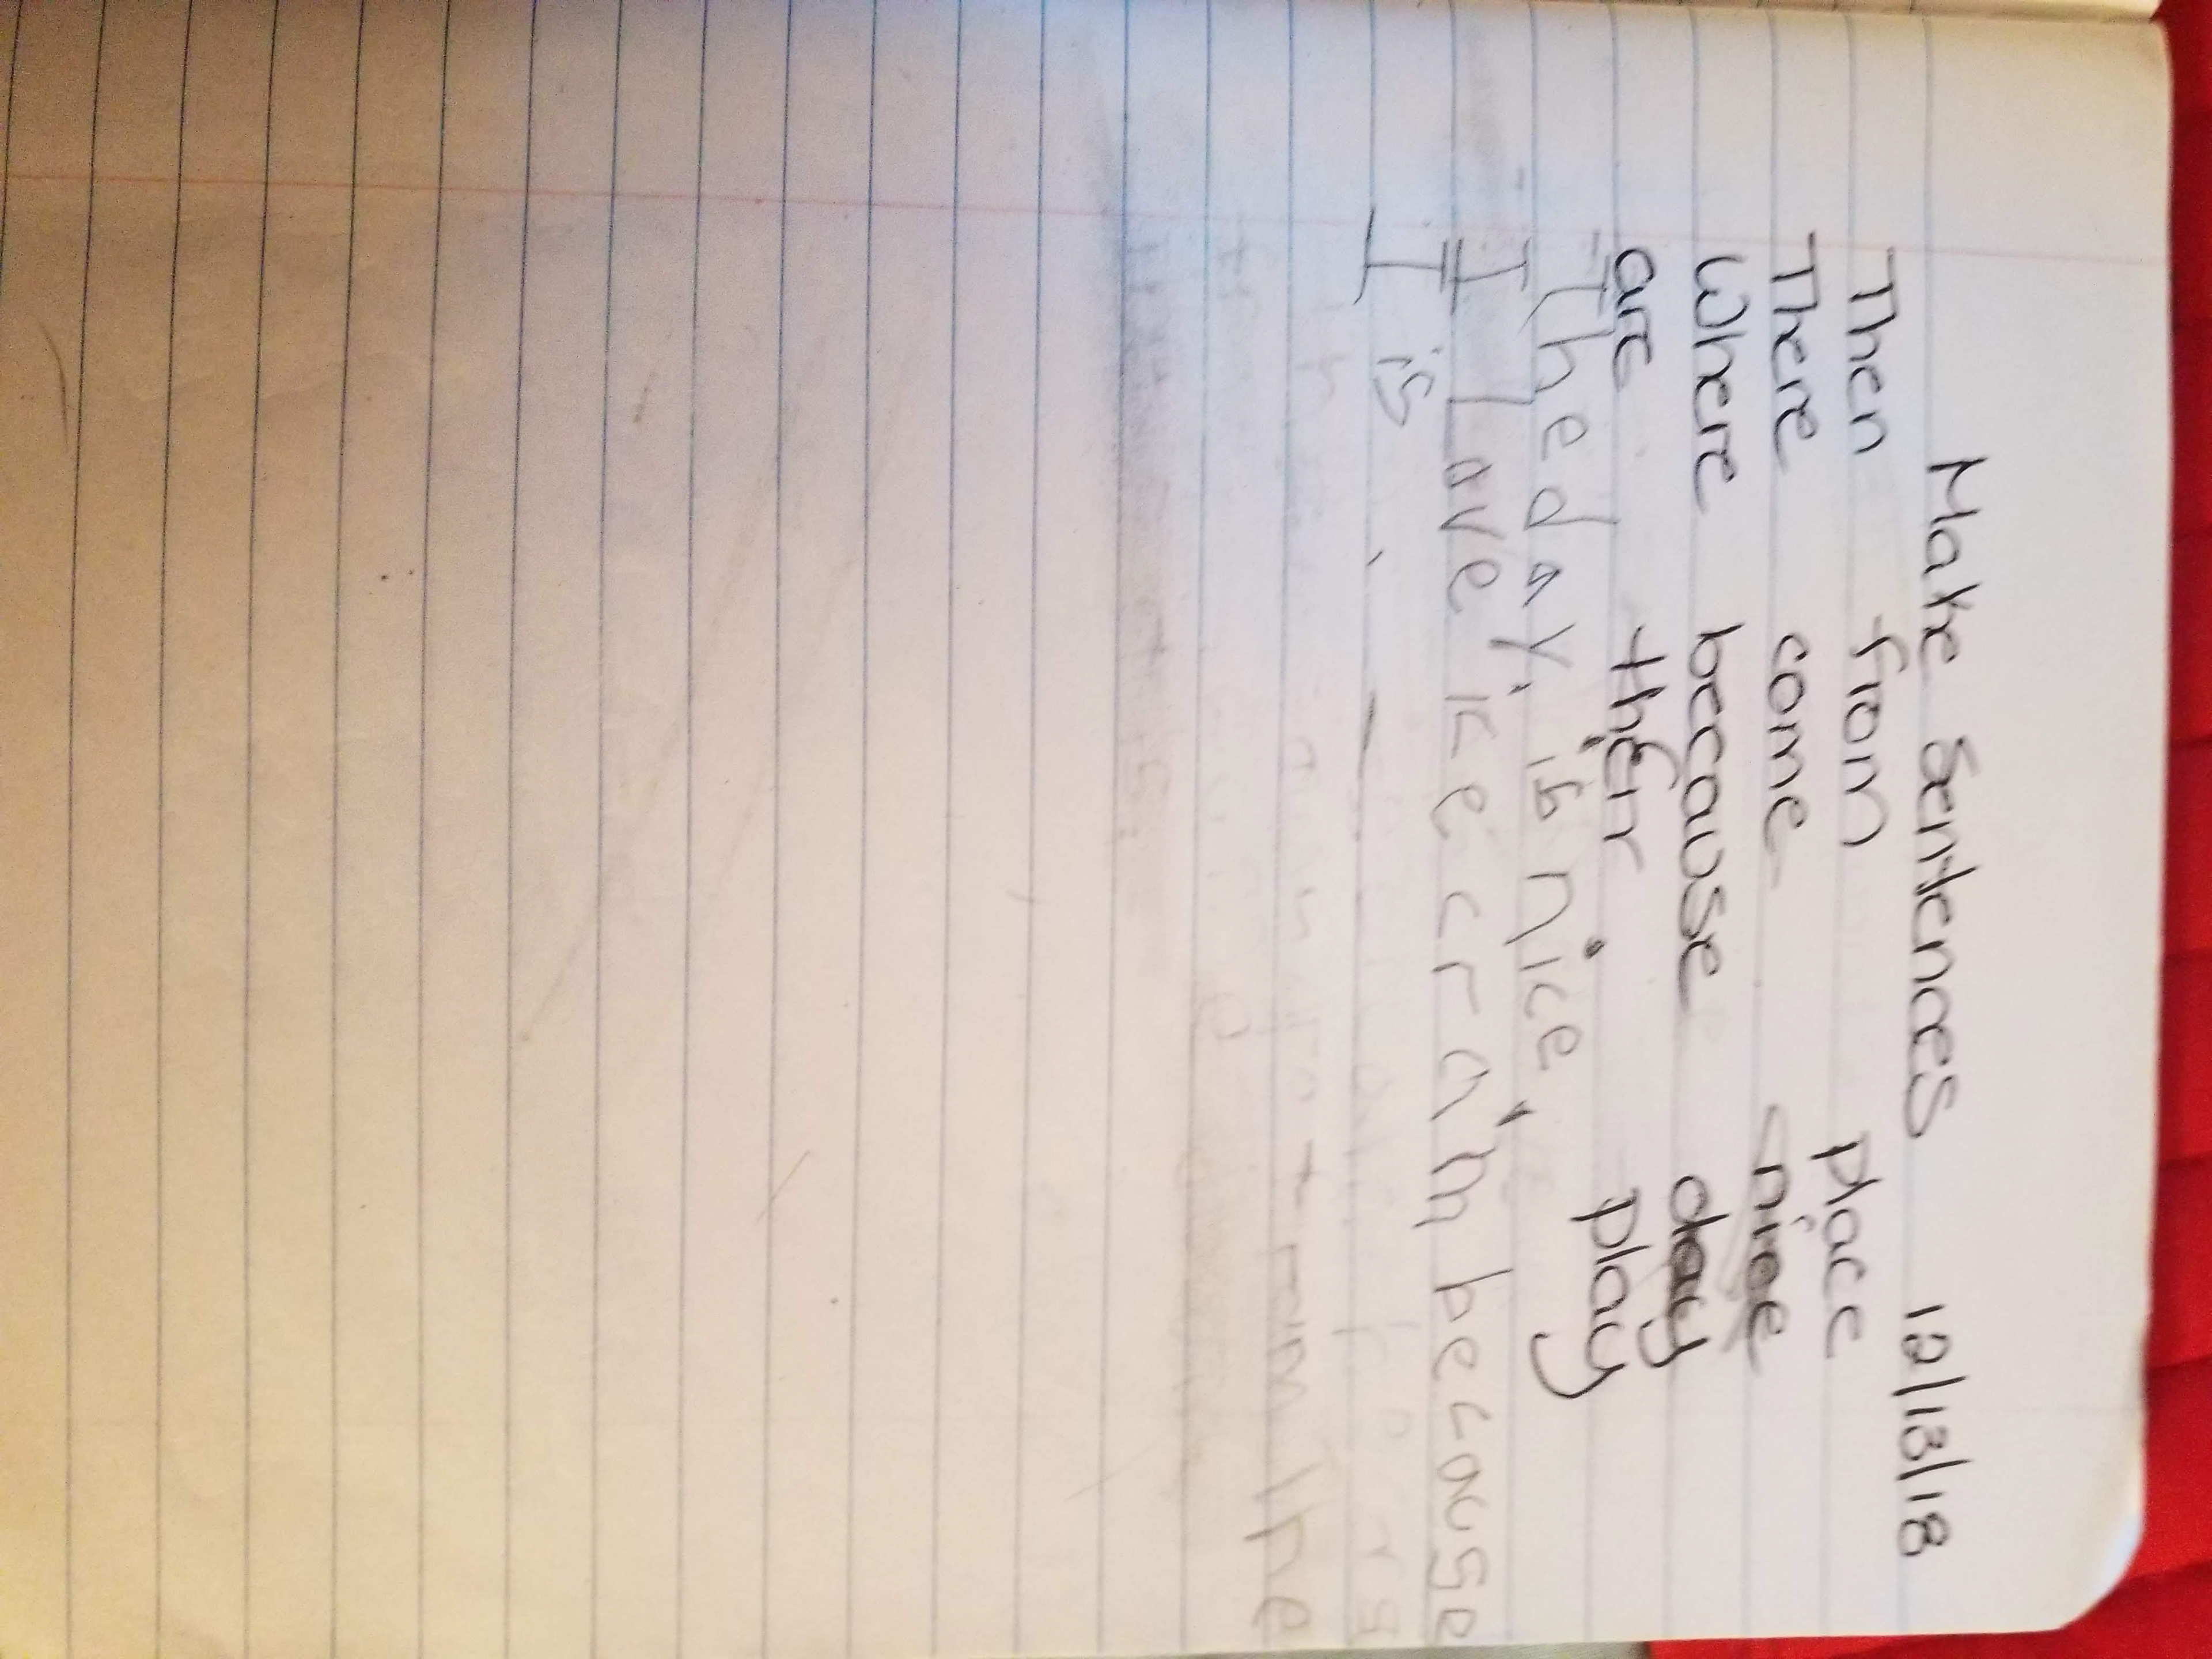 Make Sentences 12/13/18
Then from place
There come nice
Where because day
are their play
The day is nice.
I Lave ice cram because
I is